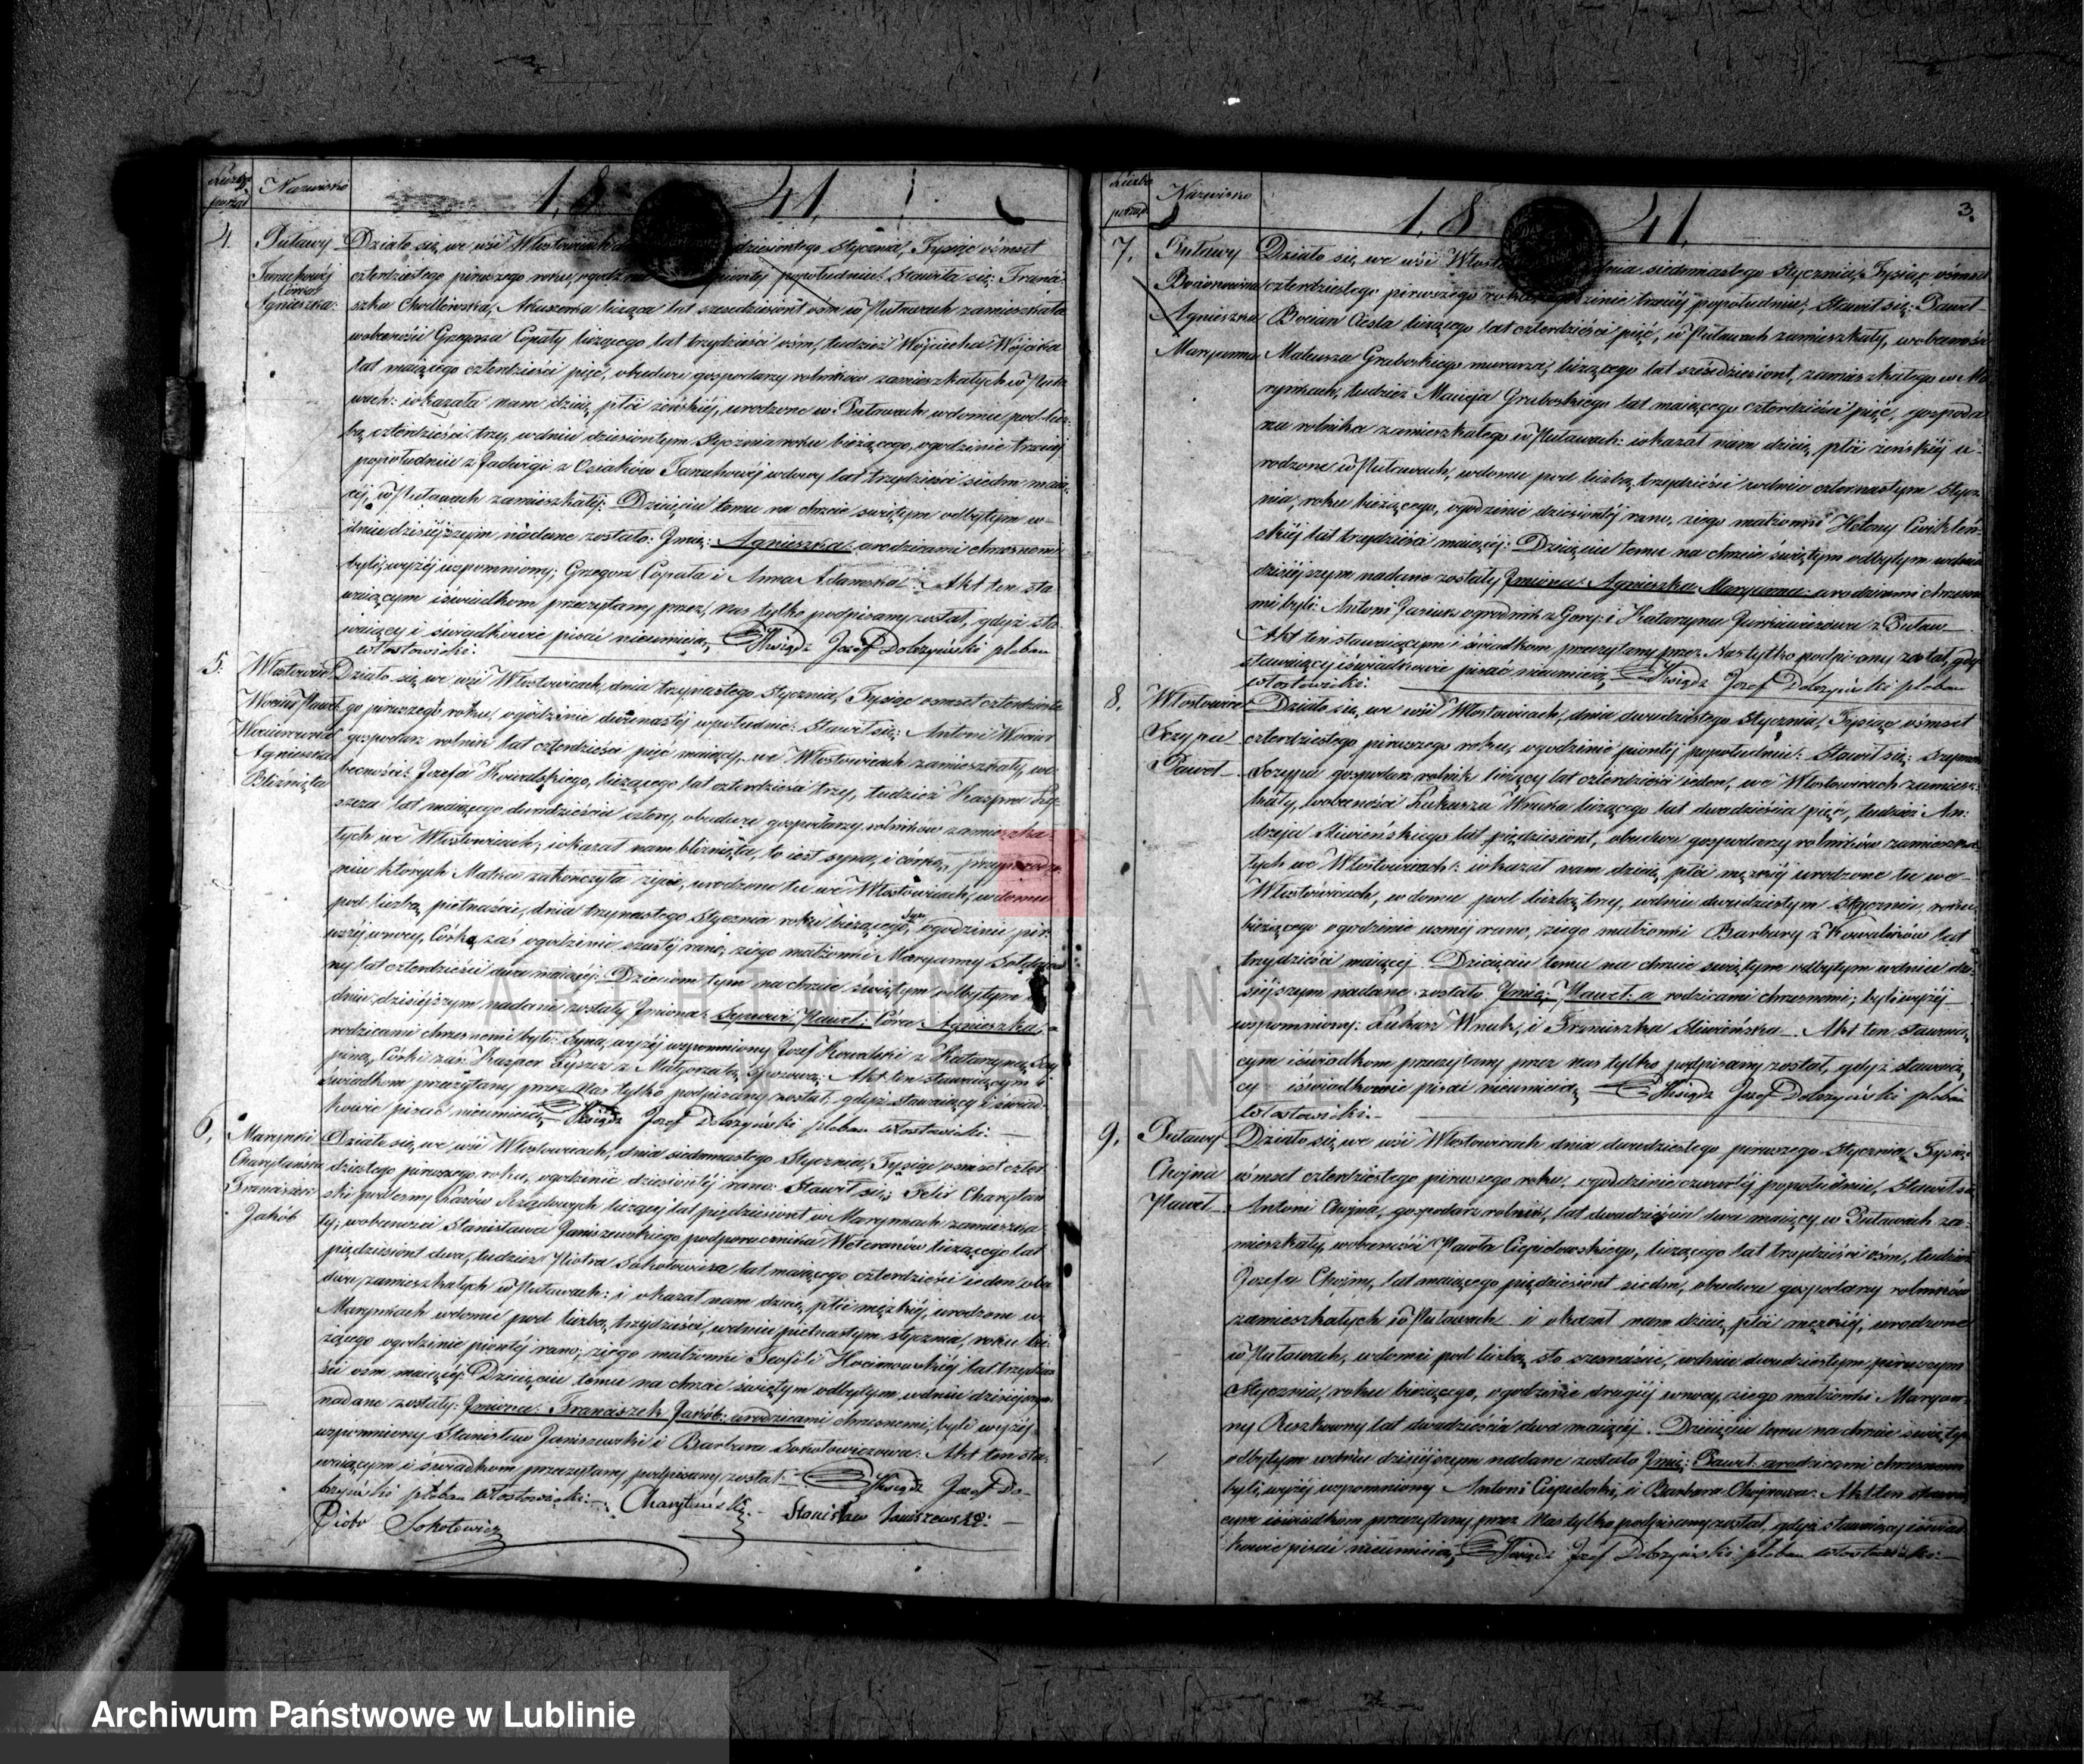 Liczba porząd
Nazwisko
1841.
4.
Puławy
Agnieszka
Działo się we wsi Włostowicach dziesiontego Stycznia, Tysiąc ośmset
czterdziestego pierwszego roku, o godzinie piontej popołudniu. Stawiła się Franci
szka Chodlewska, Akuszerka licząca lat sześćdziesiont ośm w Puławach zamieszkała
w obecności Grzegorza Copały liczącego lat trzydzieści ośm, tudzież Wojciecha Wójcika
lat maiącego czterdzieści pięć, obudwu gospodarzy rolników zamieszkałych w Puła
wach: i okazała nam dziecię płci żeńskiéj, urodzone w Puławach w domu pod licz
bą czterdzieści trzy, w dniu dziesiontym Stycznia roku bieżącego, o godzinie trzeciej
popołudniu z Jadwigi z Osiaków wdowy lat trzydzieści siedm maią
cej, w Puławach zamieszkałej; Dziecięciu temu na chrzcie świętym odbytym w
dniu dzisiéjszym nadane zostało Jmie: Agnieszka, a rodzicami chrzesnemi
byli, wyżéj wspomniony; Grzegorz Copała i Anna Adamska. Akt ten sta
waiącym i świadkom przeczytany przez Nas tylko podpisany został, gdyż sta
waiący i świadkowie pisać nieumieią, Ksiądz Jozef Dobrzyński pleban
Włostowicki.
5.
Włostowice
Paweł
Agnieszka
Bliźnięta
Działo się we wsi Włostowicach, dnia trzynastego Stycznia, Tysiąc osmset czterdzieste
go pierwszego roku, o godzinie dwunastej w południe: Stawił się: Antoni
gospodarz rolnik lat czterdzieści pięć maiący, we Włostowicach zamieszkały, w o
becności: Jozefa Kowalskiego, liczącego lat czterdzieści trzy, tudzież Kaspra Łys
szcza lat maiącego dwadzieścia cztery, obudwu gospodarzy rolników zamieszka
łych we Włostowicach, i okazał nam bliźnięta, to iest syna, i córkę, przy urodze
niu których Matka zakończyła życie, urodzone tu we Włostowicach, w domu
pod liczbą piętnaście, dnia trzynastego Stycznia roku bieżącego, Syn o godzinie pier
wszéj w nocy, Córka zaś o godzinie szóstej rano, z iego małżonki Maryanny
ny lat czterdzieści dwa maiącéj: Dzieciom tym na chrzcie świętym odbytym w
dniu dzisiéjszym nadane zostały Jmiona: Synowi Paweł; Córce Agnieszka, a
rodzicami chrzesnemi byli: Syna, wyżéj wspomniony Jozef Kowalski z Katarzyną Szczy
piną, Córki zaś: Kasper Łyszcz z Małgorzatą Akt ten stawaiącym i
świadkom przeczytany przez Nas tylko podpisany został, gdyż stawaiący i świad
kowie pisać nieumieią, Ksiądz Jozef Dobrzyński pleban Włostowicki.
6.
Marynki
Charytański
Franciszek
Jakób
Działo się we wsi Włostowicach, dnia siedmnastego Stycznia, Tysiąc osmset czter
dziestego pierwszego roku, o godzinie dziesiontej rano: Stawił się, Felix Charytań
ski podleśny Lasów Rządowych liczący lat pięćdziesiont w Marynkach zamieszka
ły, w obecności Stanisława Janiszewskiego podporucznika Weteranów liczącego lat
pięćdziesiont dwa, tudzież Piotra Sokołowicza lat maiącego czterdzieści ieden, obu
dwu zamieszkałych w Puławach: i okazał nam dziecię płci męzkiéj, urodzone w
Marynkach w domu pod liczbą trzydzieści, w dniu piętnastym stycznia, roku bie
żącego o godzinie piontéj rano, z iego małżonki Teofili lat trzydzie
ści ośm maiącéj: Dziecięciu temu na chrzcie świętym odbytym w dniu dzisiéjszym
nadane zostały: Jmiona: Franciszek Jakób: a rodzicami chrzesnemi byli wyżéj
wspomniony Stanisław Janiszewski i Barbara Sokołowiczowa. Akt ten sta
waiącym i świadkom przeczytany podpisany został. Ksiądz Jozef Do
brzyński pleban Włostowicki. Charytański Stanisław Janiszewski
Piotr Sokołowicz
Liczba porząd
Nazwisko
1841.
3.
7.
Puławy
Agnieszka
Maryanna
Działo się we wsi Włosto dnia siedmnastego Stycznia, Tysiąc ośmset
czterdziestego pierwszego roku, o godzinie trzeciéj popołudniu, Stawił się: Paweł
Bocian Cieśla liczącego lat czterdzieści pięć, w Puławach zamieszkały, w obecności
Mateusza Graboskiego murarza, liczącego lat sześćdziesiont, zamieszkałego w Ma
rynkach, tudzież Macieja Graboskiego lat maiącego czterdzieści pięć, gospoda
rza rolnika zamieszkałego w Puławach: i okazał nam dziecię płci żeńskiéj u
rodzone w Puławach, w domu pod liczbą trzydzieści w dniu czternastym Stycz
nia, roku bieżącego, o godzinie dziesiontéj rano, z iego małżonki Heleny Cwikleń
skiéj lat trzydzieści maiącéj: Dziecięciu temu na chrzcie świętym odbytym w dniu
dzisiéjszym nadane zostały Jmiona: Agnieszka Maryanna: a rodzicami chrzesne
mi byli: Antoni ogrodnik z Gory: i Katarzyna Jurkiewiczowa z Puław
Akt ten stawaiącym i świadkom, przeczytany przez Nas tylko podpisany został, gdy
stawaiący i świadkowie pisać nieumieią, Ksiądz Jozef Dobrzyński pleban
Włostowicki.
8.
Włostowice
Szczypa
Paweł
Działo się we wsi Włostowicach, dnia dwudziestego Stycznia, Tysiąc ośmset
czterdziestego pierwszego roku, o godzinie piontéj popołudniu: Stawił się: Szymon
Szczypa gospodarz rolnik liczący lat czterdzieści ieden, we Włostowicach zamiesz
kały, w obecności Łukasza Wnuka liczącego lat dwadzieścia pięć, tudzież An
drzeja Sliwińskiego lat pięćdziesiont, obudwu gospodarzy rolników zamieszka
łych we Włostowicach: i okazał nam dziecię płci męzkiéj urodzone tu we
Włostowicach, w domu pod liczbą trzy, w dniu dwudziestym Stycznia, roku
bieżącego o godzinie usméj rano, z iego małżonki Barbary z Kowalików lat
trzydzieści maiącej. Dziecięciu temu na chrzcie świętym odbytym w dniu dzi
siéjszym nadane zostało Jmie: Paweł: a rodzicami chrzesnemi, byli wyżéj
wspomniony: Łukasz Wnuk, i Franciszka Sliwińska. Akt ten stawaią
cym i świadkom przeczytany przez nas tylko podpisany został, gdyż stawaią
cy i świadkowie pisać nieumieią, Ksiądz Jozef Dobrzyński pleban
Włostowicki.
9.
Puławy
Chojna
Paweł
Działo się we wsi Włostowicach dnia dwudziestego pierwszego Stycznia, Tysiąc
ośmset czterdziestego pierwszego roku, o godzinie czwartéj popołudniu, Stawił się
Antoni Chojna, gospodarz rolnik, lat dwadzieścia dwa maiący w Puławach za
mieszkały, w obecności Pawła Ciepielowskiego, liczącego lat trzydzieści ośm, tudzież
Jozefa Chojny, lat maiącego pięćdziesiont siedm, obudwu gospodarzy rolników
zamieszkałych w Puławach i okazał nam dziecię płci męzkiéj, urodzone
w Puławach, w domu pod liczbą sto szesnaście, w dniu dwudziestym pierwszym
Stycznia, roku bieżącego, o godzinie drugiéj w nocy, z iego małżonki Maryan
ny Reszkowny lat dwadzieścia dwa maiącéj. Dziecięciu temu na chrzcie świętym
odbytym w dniu dzisiéjszym nadane zostało Jmie: Paweł: a rodzicami chrzesnemi
byli, wyżéj wspomniony Antoni Ciepielski, i Barbara Chojnowa: Akt ten stawaią
cym i świadkom przeczytany przez Nas tylko podpisany został, gdyż stawaiący i świad
kowie pisać nieumieią, Ksiądz Jozef Dobrzyński pleban Włostowicki.
Archiwum Państwowe w Lublinie